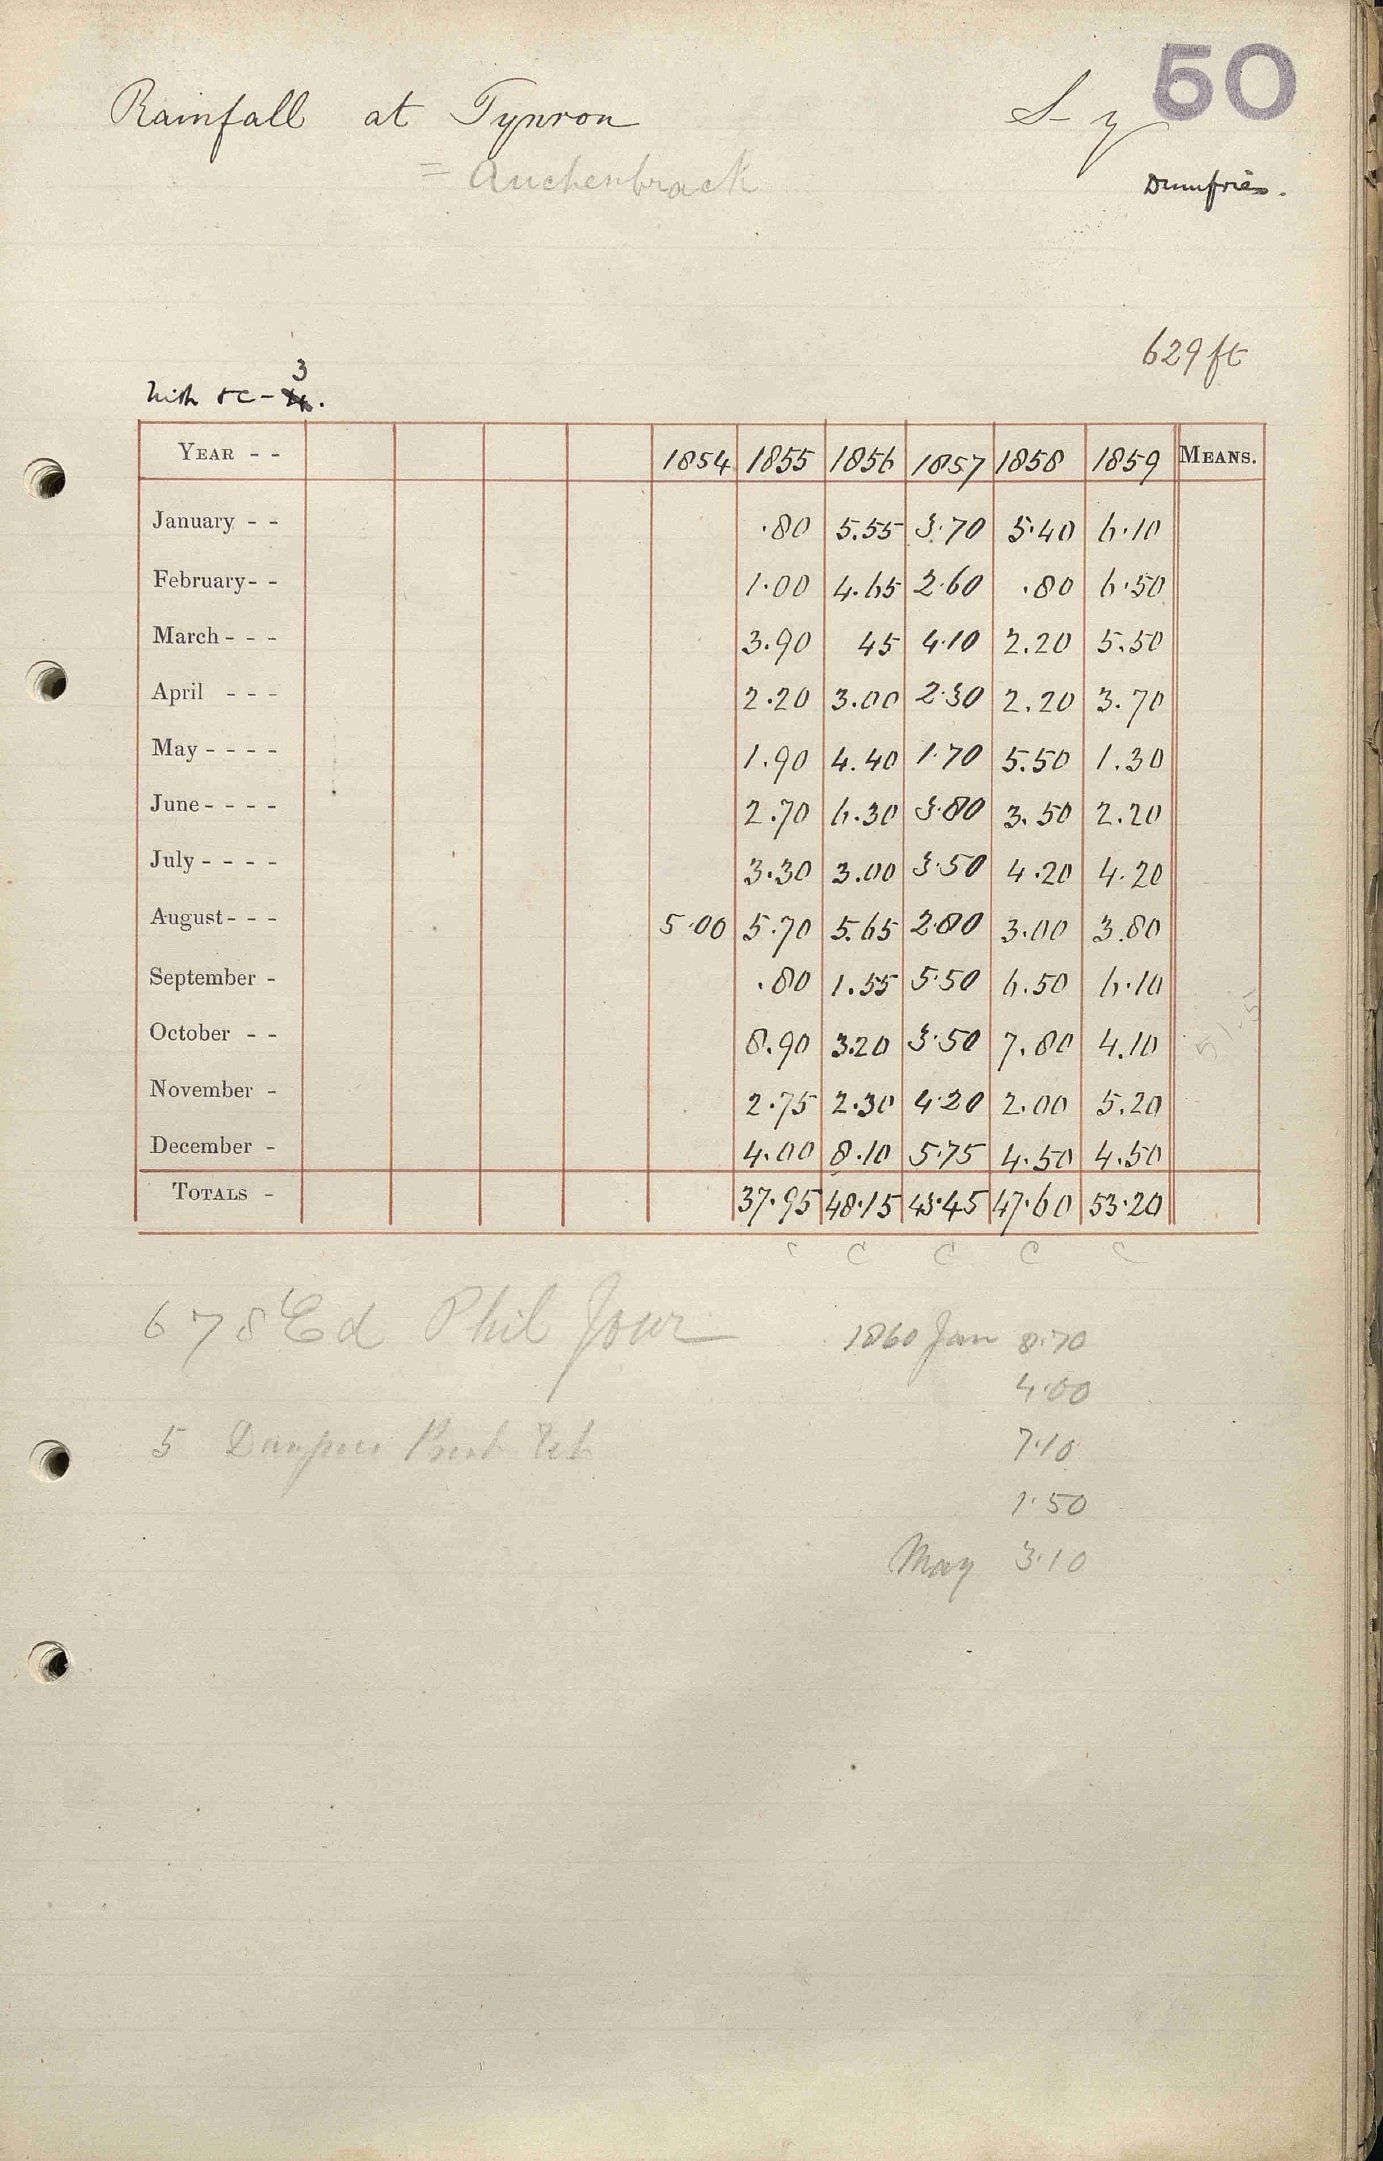 50
Rainfall at Tynron S- y
= Auchenbrack
Dumfries.
629 ft
3
YEAR - - 1854 1855 1856 1857 1858 1859 MEANS.
January - - .80 5.55 3.70 5.40 6.10
February - - 1.00 4.65 2.60 .80 6.50
March - - - 3.90 45 4.10 2.20 5.50
April - - - 2.20 3.00 2.30 2.20 3.70
May - - - - 1.90 4.40 1.70 5.50 1.30
June - - - - 2.70 6.30 3.80 3.50 2.20
July - - - - 3.30 3.00 3.50 4.20 4.20
August - - - 5.00 5.70 5.65 2.80 3.00 3.80
September - .80 1.55 5.50 6.50 6.10
October - - 8.90 3.20 3.50 7.80 4.10
November - 2.75 2.30 4.20 2.00 5.20
December - 4.00 8.10 5.75 4.50 4.50
TOTALS - 37.95 48.15 43.45 47.60 53.20
c c c c c
6 7 8 Ed Phil Jour 1860 Jan 8.70
4.00
5 7.10
1.50
May 3.10